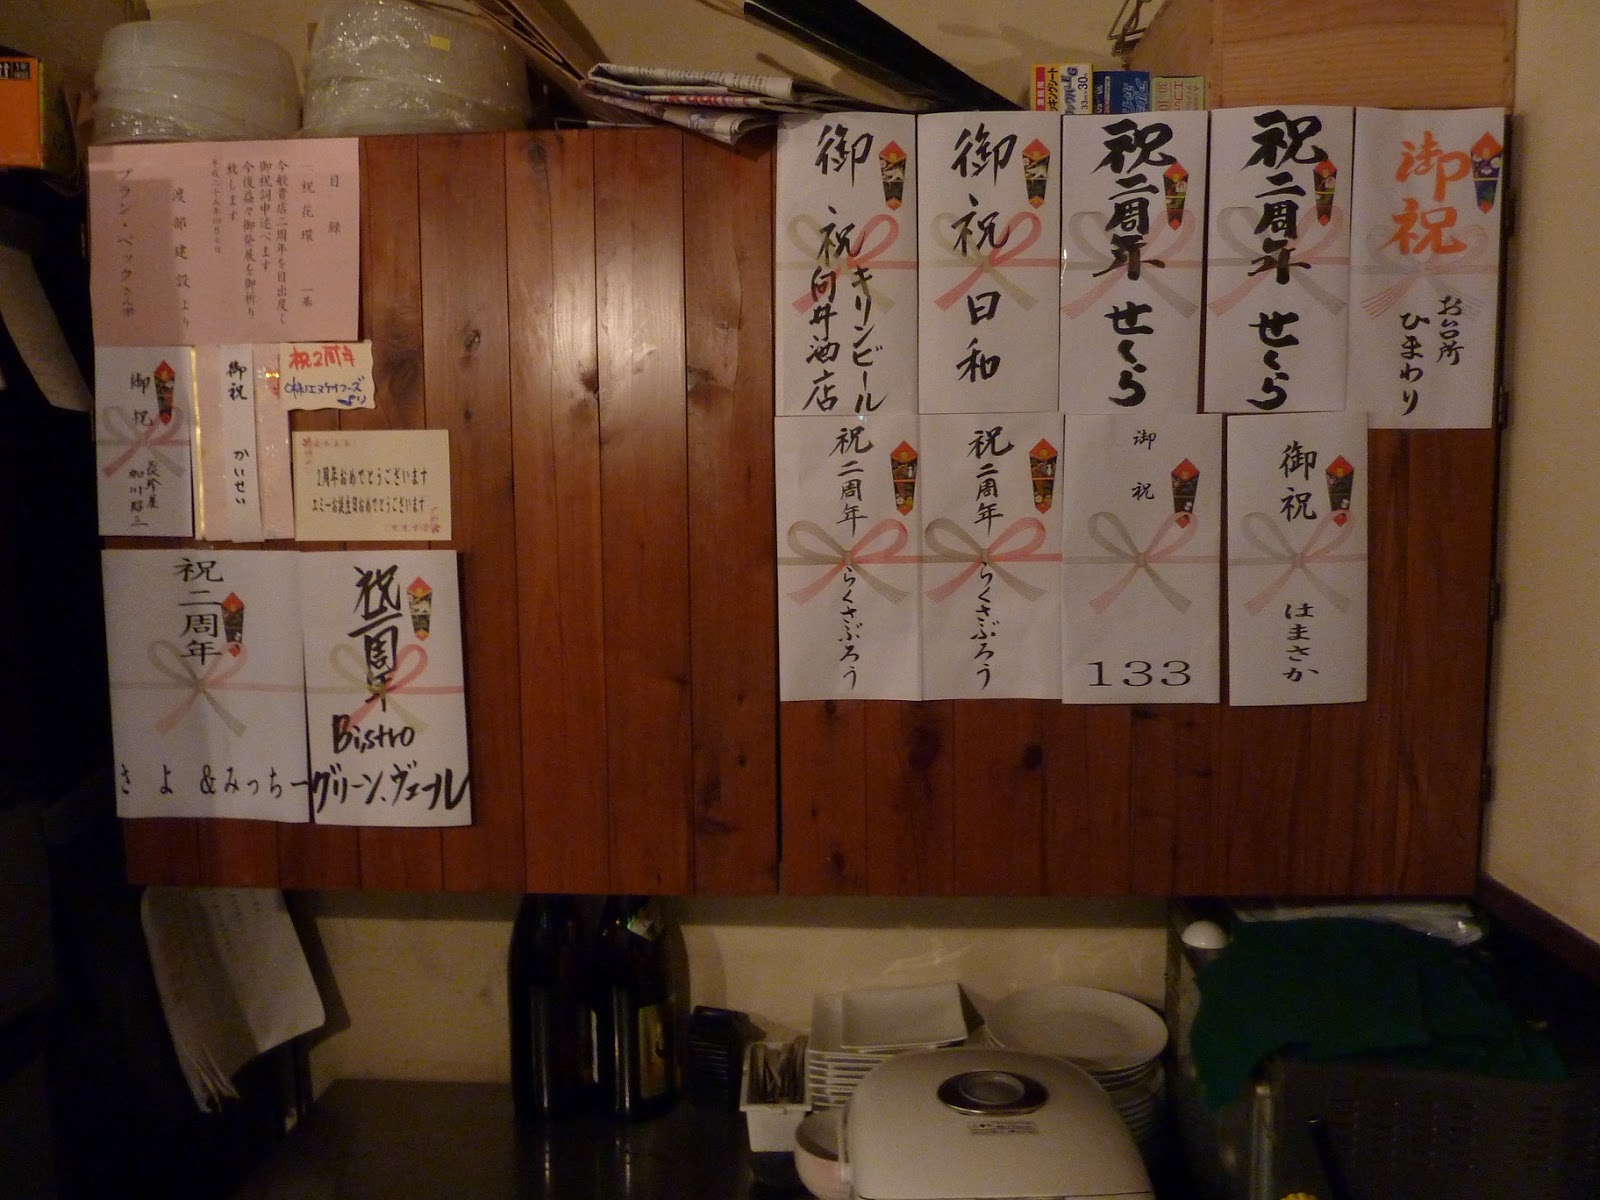 目録
一 祝花環 一基
今般貴店二周年を目出度く
御祝詞申述べます
今後益々御発展を御祈り
致します
平成二十五年四月七日
渡部建設より
ブラン・ペックさん江
御祝
かいせい
祝2周年
御祝
加川昭三
2周年おめでとうございます
エミーお誕生日おめでとうございます
祝二周年
さよ&みっちー
祝二周年
Bistro
グリーン、ヴェール
御祝
キリンビール
向井酒店
御祝
日和
祝二周年
せくら
祝二周年
せくら
御祝
お台所
ひまわり
祝二周年
らくさぶろう
祝二周年
らくさぶろう
御祝
133
御祝
はまさか